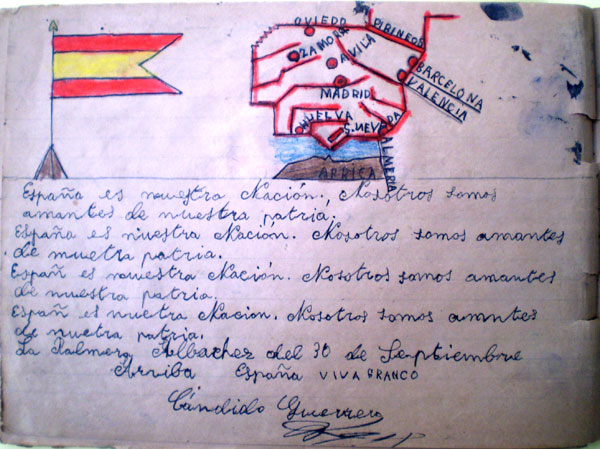 OVIEDO
PIRINEOS
ZAMORA
AVILA
BARCELONA
VALENCIA
MADRID
HUELVA
S. NEVADA
ALMERIA
AFRICA
España es nuestra Nación, Nosotros somos
amantes de nuestra patria.
España es nuestra Nación. Nosotros somos amantes
de muetra patria.
Españ es nuuestra Nación. Nosotros somos amantes
de nuestra patria.
Españ es nuetra Nacion. Nosotros somos amntes
de nuetra patria.
La Palmera Albachez del 30 de Septiembre
Arriba España VIVA FRANCO
Cándido Guerrero